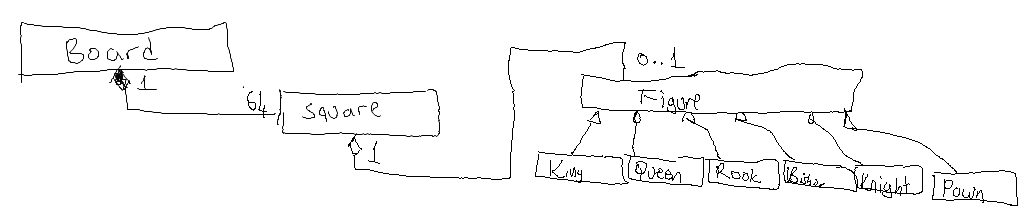 Board
1
64
Square
1
0..1
Figure
King
Queen
Rook
Knight
Pawn